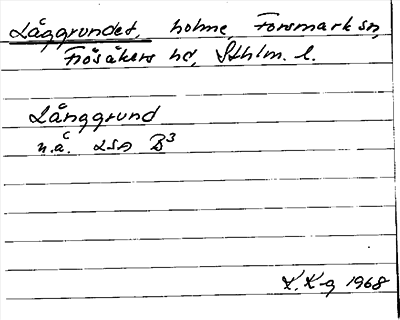 Låggrundet, holme, Forsmark sn,
Frösåkers hd, Sthlm. l.
Långgrund
n.å. LSA B³
K.K-g 1968